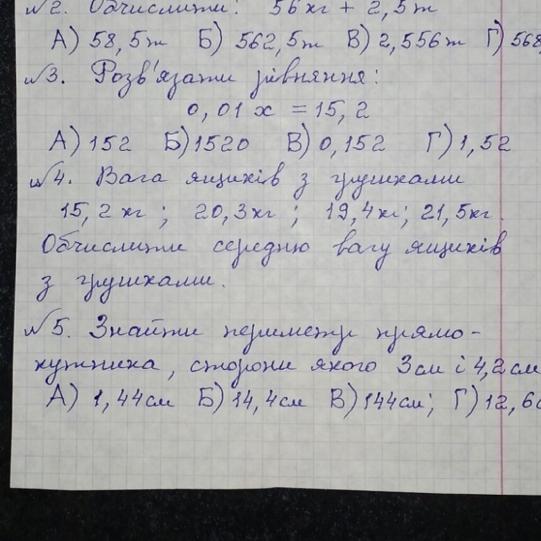 №2. Обчислити: 56 кг + 2,5 т
А) 58,5 т Б) 562,5 т В) 2,556 т Г) 568,
№3. Розв'язати рівняння:
0,01 х = 15,2
А) 152 Б) 1520 В) 0,152 Г) 1,52
№4. Вага ящиків з грушками
15,2 кг ; 20,3 кг ; 19,4 кг; 21,5 кг.
Обчислити середню вагу ящиків
з грушками.
№5. Знайти периметр прямо-
кутника, сторони якого 3 см і 4,2 см
А) 1,44 см Б) 14,4 см В) 144 см; Г) 12,6